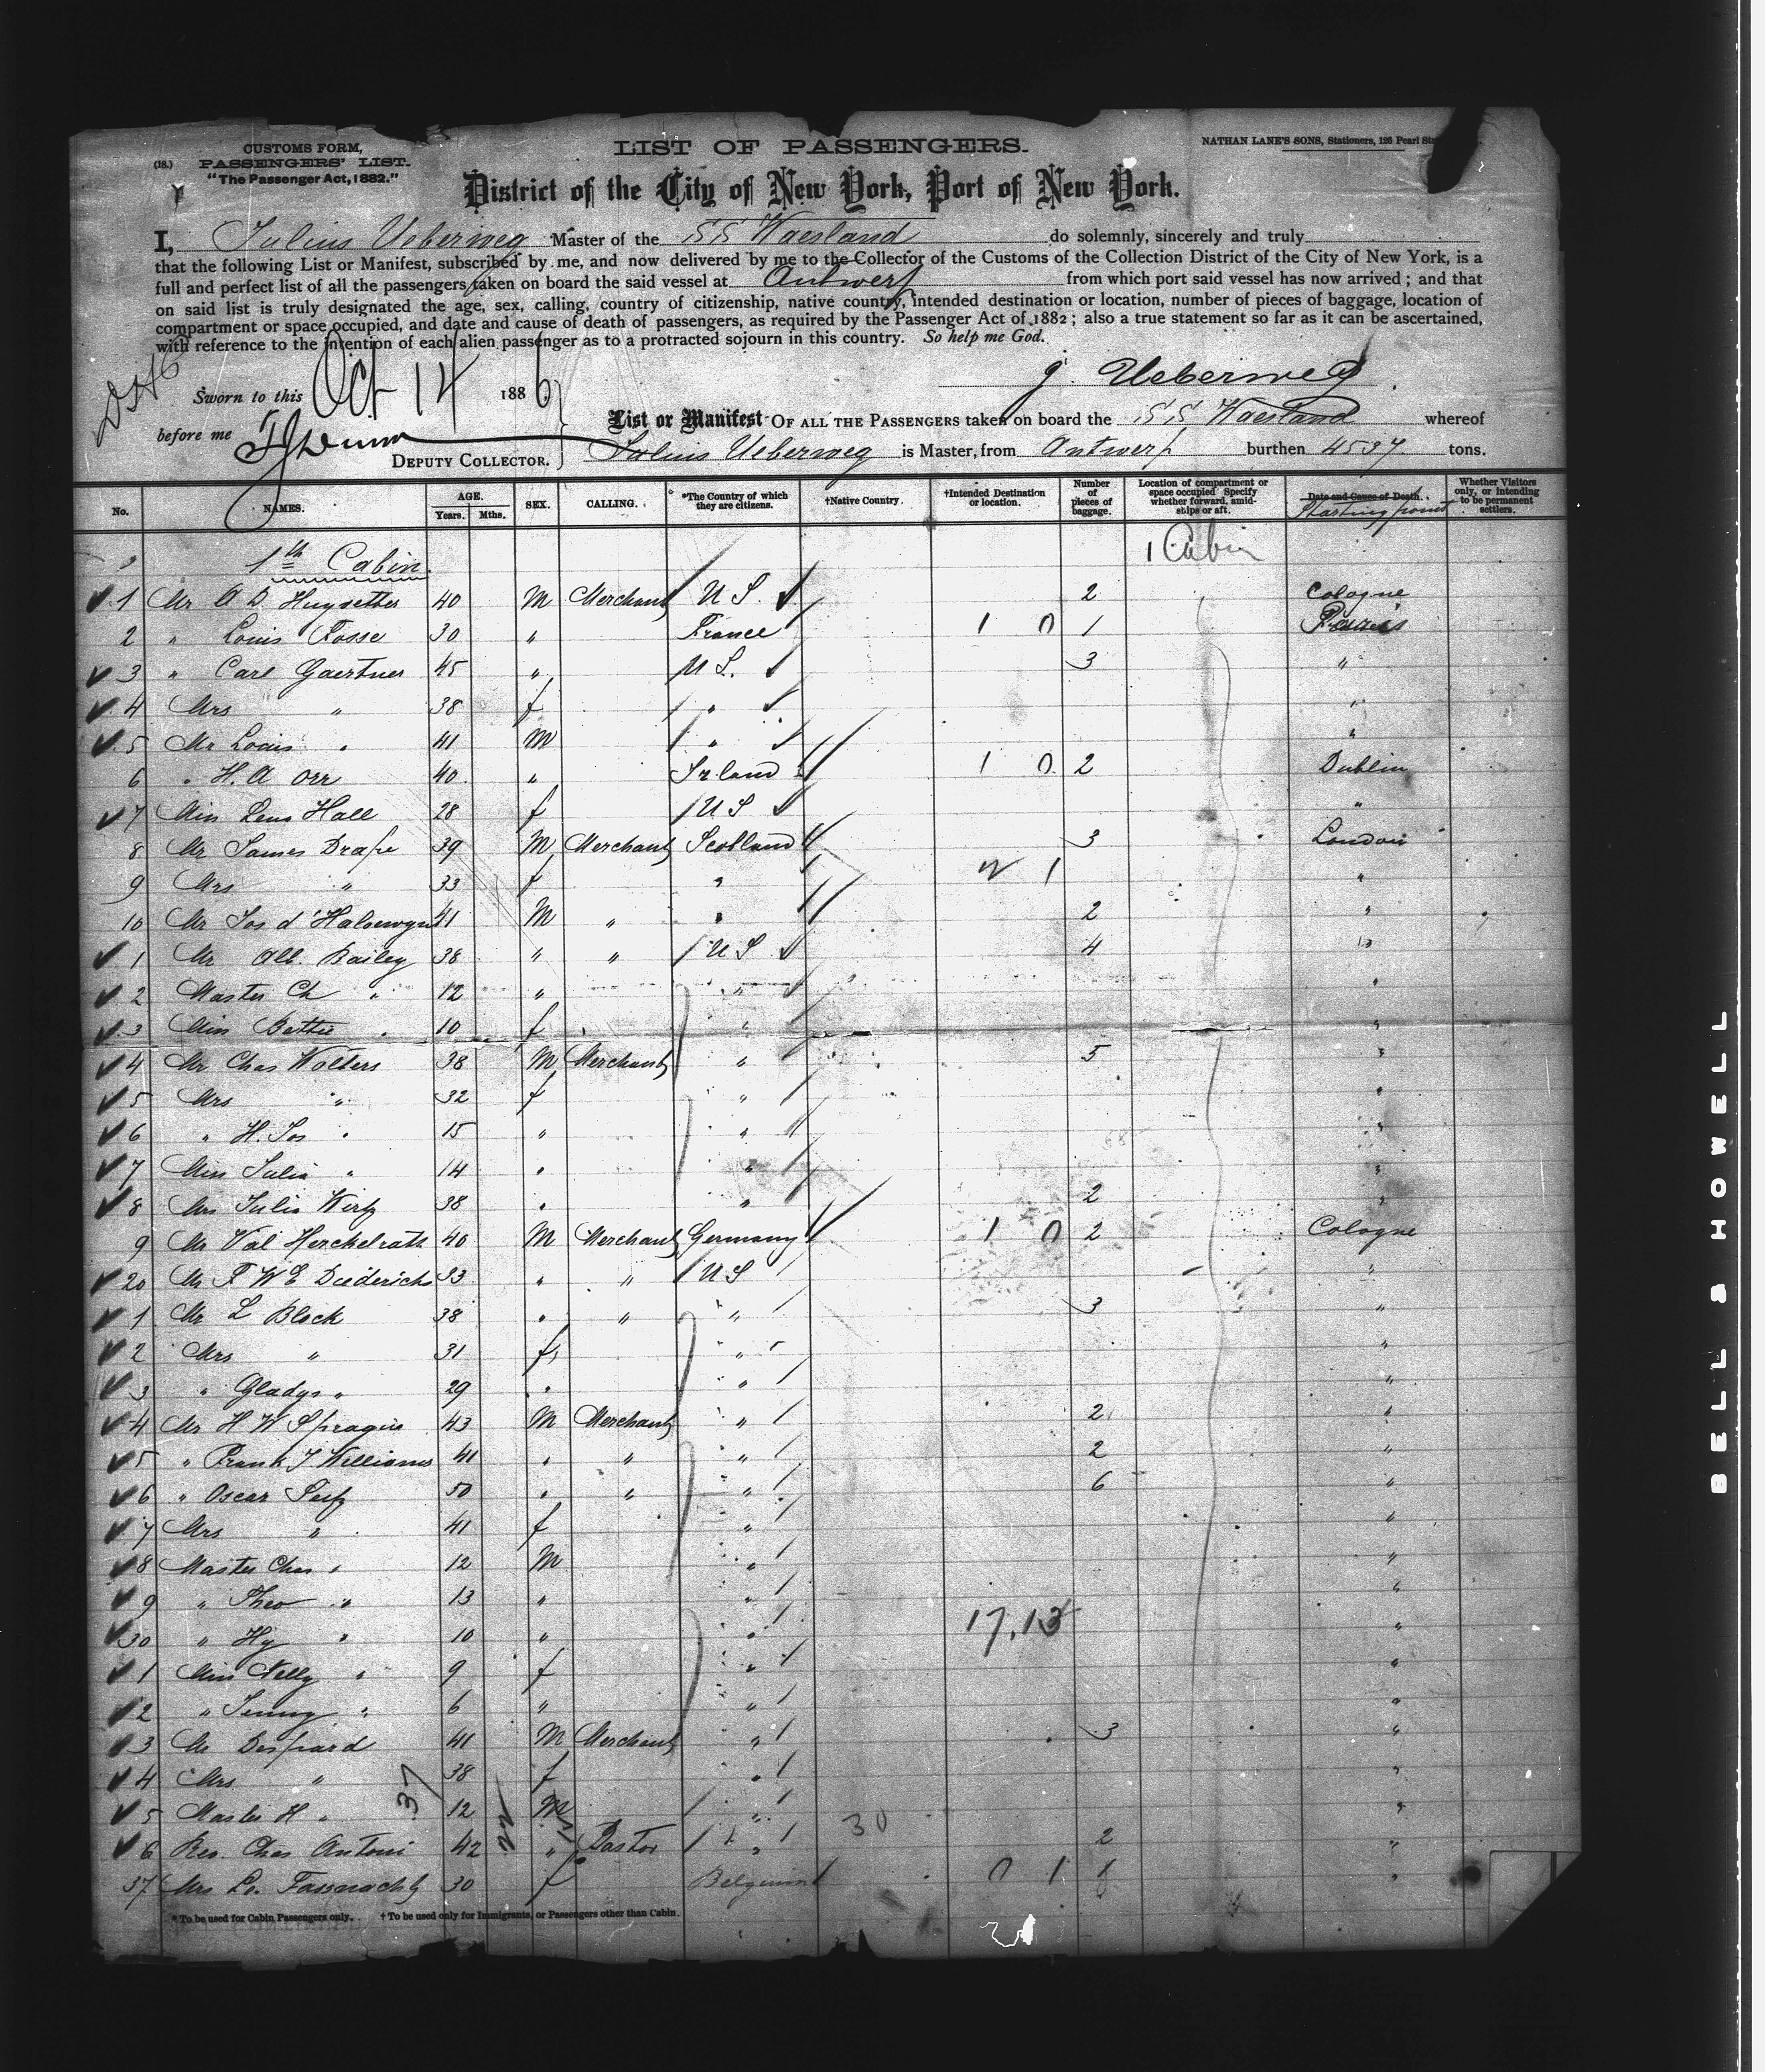 CUSTOMS FORM,
(18.) PASSENGERS' LIST.
"The Passenger Act, 1882."
LIST OF PASSENGERS.
NATHAN LANE'S SONS, Stationers, 126 Pearl
District of the City of New York, Port of New York.
I, Julius Ueberweg Master of the SS Waesland do solemnly, sincerely and truly
that the following List or Manifest, subscribed by me, and now delivered by me to the Collector of the Customs of the Collection District of the City of New York, is a
full and perfect list of all the passengers taken on board the said vessel at Antwerp from which port said vessel has now arrived; and that
on said list is truly designated the age, sex, calling, country of citizenship, native country, intended destination or location, number of pieces of baggage, location of
compartment or space occupied, and date and cause of death of passengers, as required by the Passenger Act of 1882; also a true statement so far as it can be ascertained,
with reference to the intention of each alien passenger as to a protracted sojourn in this country. So help me God.
J. Ueberweg
Sworn to this Oct 14 1886
before me
DEPUTY COLLECTOR.
List or Manifest OF ALL THE PASSENGERS taken on board the SS Waesland whereof
Julius Ueberweg is Master, from Antwerp burthen 4537 tons.
No. NAMES. AGE. Years. Mths. SEX. CALLING. *The Country of which they are citizens. †Native Country. †Intended Destination or location. Number of pieces of baggage. Location of compartment or space occupied Specify whether forward, amidships or aft. Date and Cause of Death. Starting point Whether Visitors only, or intending to be permanent settlers.
1th Cabin 1 Cabin
1 Mr A D Huysetter 40 M Merchant U S. 2 Cologne
2 " Louis Fosse 30 " France 1 0 1 Paris
3 " Carl Gaertner 45 " U S. 3 "
4 Mrs " 38 f " "
5 Mr Louis " 41 M " "
6 " H. A Orr 40 " Irland 1 0 2 Dublin
7 Miss Lena Hall 28 f U S "
8 Mr James Drape 39 M Merchant Scotland 3 London
9 Mrs " 33 f " 1 "
10 Mr Jos d'Haloewyn 41 M " " 2 "
1 Mr Alb. Bailey 38 " " U S 4 "
2 Master Ch " 12 " " "
3 Miss Bettie " 10 f " "
4 Mr Chas Wolters 38 M Merchant " 5 "
5 Mrs " 32 f " "
6 " H. Jos " 15 " " "
7 Miss Julia " 14 " " "
8 Mrs Julia Wirtz 38 " " 2 "
9 Mr Val Herckelrath 40 M Merchant Germany 1 0 2 Cologne
20 Mr F W E Diederichs 33 " " U S "
1 Mr L Block 38 " " " 3 "
2 Mrs " 31 f " "
3 " Gladys " 29 " " "
4 Mr H W Sprague 43 M Merchant " 2 "
5 " Frank J Williams 41 " " " 2 "
6 " Oscar 50 " " " 6 "
7 Mrs " 41 f " "
8 Master Chas " 12 M " "
9 " Theo " 13 " " "
30 " Hy " 10 " " 17.13 "
1 Miss Nelly " 9 f " "
2 " Jenny " 6 " " "
3 Mr Despard 41 M Merchant " 3 "
4 Mrs " 38 f " "
5 Master H " 37 12 22 M " 30 "
6 Rev. Chas Antoni 42 " Pastor " 2 "
37 Mrs Lo. Fassnacht 30 f Belgium 0 1 1 "
*To be used for Cabin Passengers only. †To be used only for Immigrants, or Passengers other than Cabin.
BELL & HOWELL